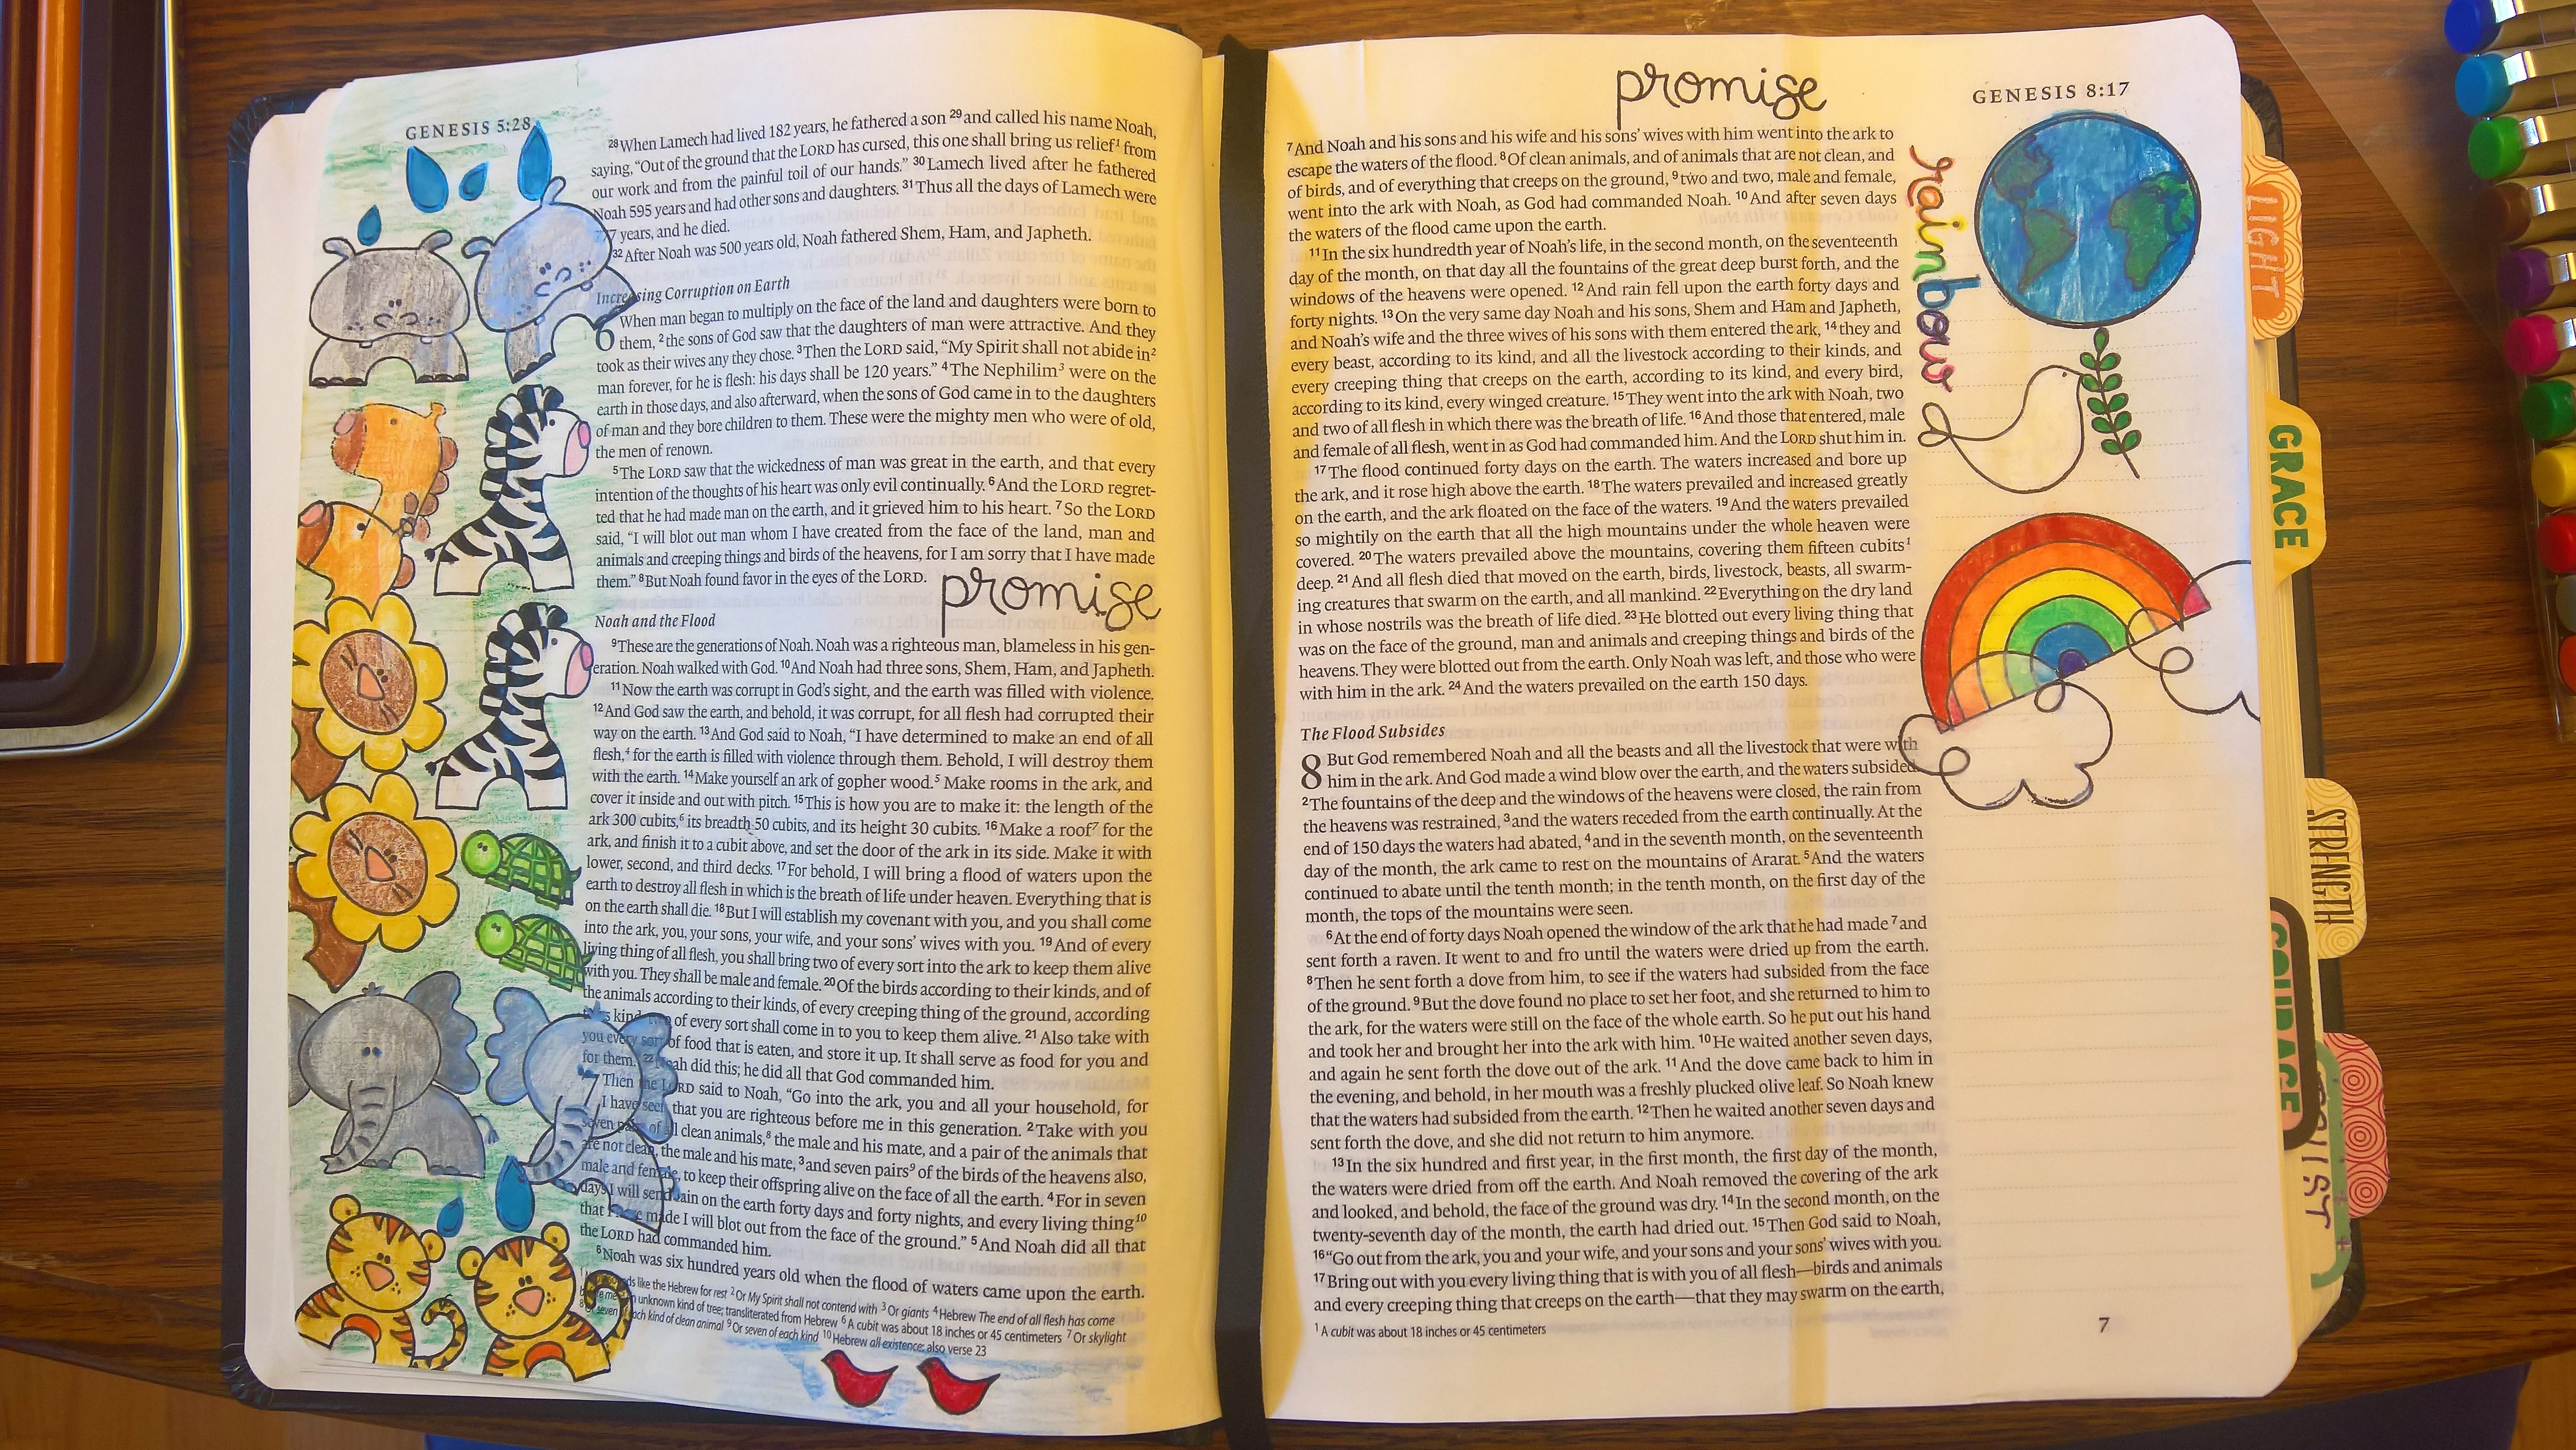 GENESIS 5:28
28 When Lamech had lived 182 years, he fathered a son 29 and called his name Noah,
saying, “Out of the ground that the LORD has cursed, this one shall bring us relief1 from
our work and from the painful toil of our hands.” 30 Lamech lived after he fathered
Noah 595 years and had other sons and daughters. 31 Thus all the days of Lamech were
years, and he died.
32 After Noah was 500 years old, Noah fathered Shem, Ham, and Japheth.
Increasing Corruption on Earth
6 When man began to multiply on the face of the land and daughters were born to
them, 2 the sons of God saw that the daughters of man were attractive. And they
took as their wives any they chose. 3 Then the LORD said, “My Spirit shall not abide in2
man forever, for he is flesh: his days shall be 120 years.” 4 The Nephilim3 were on the
earth in those days, and also afterward, when the sons of God came in to the daughters
of man and they bore children to them. These were the mighty men who were of old,
the men of renown.
5 The LORD saw that the wickedness of man was great in the earth, and that every
intention of the thoughts of his heart was only evil continually. 6 And the LORD regret-
ted that he had made man on the earth, and it grieved him to his heart. 7 So the LORD
said, “I will blot out man whom I have created from the face of the land, man and
animals and creeping things and birds of the heavens, for I am sorry that I have made
them.” 8 But Noah found favor in the eyes of the LORD.
promise
Noah and the Flood
9 These are the generations of Noah. Noah was a righteous man, blameless in his gen-
eration. Noah walked with God. 10 And Noah had three sons, Shem, Ham, and Japheth.
11 Now the earth was corrupt in God’s sight, and the earth was filled with violence.
12 And God saw the earth, and behold, it was corrupt, for all flesh had corrupted their
way on the earth. 13 And God said to Noah, “I have determined to make an end of all
flesh,4 for the earth is filled with violence through them. Behold, I will destroy them
with the earth. 14 Make yourself an ark of gopher wood.5 Make rooms in the ark, and
cover it inside and out with pitch. 15 This is how you are to make it: the length of the
ark 300 cubits,6 its breadth 50 cubits, and its height 30 cubits. 16 Make a roof7 for the
ark, and finish it to a cubit above, and set the door of the ark in its side. Make it with
lower, second, and third decks. 17 For behold, I will bring a flood of waters upon the
earth to destroy all flesh in which is the breath of life under heaven. Everything that is
on the earth shall die. 18 But I will establish my covenant with you, and you shall come
into the ark, you, your sons, your wife, and your sons’ wives with you. 19 And of every
living thing of all flesh, you shall bring two of every sort into the ark to keep them alive
with you. They shall be male and female. 20 Of the birds according to their kinds, and of
the animals according to their kinds, of every creeping thing of the ground, according
kind, two of every sort shall come in to you to keep them alive. 21 Also take with
you every sort of food that is eaten, and store it up. It shall serve as food for you and
for them.” 22 Noah did this; he did all that God commanded him.
7 Then the LORD said to Noah, “Go into the ark, you and all your household, for
I have seen that you are righteous before me in this generation. 2 Take with you
seven pairs of all clean animals,8 the male and his mate, and a pair of the animals that
are not clean, the male and his mate, 3 and seven pairs9 of the birds of the heavens also,
male and female, to keep their offspring alive on the face of all the earth. 4 For in seven
days I will send rain on the earth forty days and forty nights, and every living thing10
that I have made I will blot out from the face of the ground.” 5 And Noah did all that
the LORD had commanded him.
6 Noah was six hundred years old when the flood of waters came upon the earth.
like the Hebrew for rest 2 Or My Spirit shall not contend with 3 Or giants 4 Hebrew The end of all flesh has come
unknown kind of tree; transliterated from Hebrew 6 A cubit was about 18 inches or 45 centimeters 7 Or skylight
8 Or seven of each kind of clean animal 9 Or seven of each kind 10 Hebrew all existence; also verse 23
promise
GENESIS 8:17
7 And Noah and his sons and his wife and his sons’ wives with him went into the ark to
escape the waters of the flood. 8 Of clean animals, and of animals that are not clean, and
of birds, and of everything that creeps on the ground, 9 two and two, male and female,
went into the ark with Noah, as God had commanded Noah. 10 And after seven days
the waters of the flood came upon the earth.
11 In the six hundredth year of Noah’s life, in the second month, on the seventeenth
day of the month, on that day all the fountains of the great deep burst forth, and the
windows of the heavens were opened. 12 And rain fell upon the earth forty days and
forty nights. 13 On the very same day Noah and his sons, Shem and Ham and Japheth,
and Noah’s wife and the three wives of his sons with them entered the ark, 14 they and
every beast, according to its kind, and all the livestock according to their kinds, and
every creeping thing that creeps on the earth, according to its kind, and every bird,
according to its kind, every winged creature. 15 They went into the ark with Noah, two
and two of all flesh in which there was the breath of life. 16 And those that entered, male
and female of all flesh, went in as God had commanded him. And the LORD shut him in.
17 The flood continued forty days on the earth. The waters increased and bore up
the ark, and it rose high above the earth. 18 The waters prevailed and increased greatly
on the earth, and the ark floated on the face of the waters. 19 And the waters prevailed
so mightily on the earth that all the high mountains under the whole heaven were
covered. 20 The waters prevailed above the mountains, covering them fifteen cubits1
deep. 21 And all flesh died that moved on the earth, birds, livestock, beasts, all swarm-
ing creatures that swarm on the earth, and all mankind. 22 Everything on the dry land
in whose nostrils was the breath of life died. 23 He blotted out every living thing that
was on the face of the ground, man and animals and creeping things and birds of the
heavens. They were blotted out from the earth. Only Noah was left, and those who were
with him in the ark. 24 And the waters prevailed on the earth 150 days.
The Flood Subsides
8 But God remembered Noah and all the beasts and all the livestock that were with
him in the ark. And God made a wind blow over the earth, and the waters subsided.
2 The fountains of the deep and the windows of the heavens were closed, the rain from
the heavens was restrained, 3 and the waters receded from the earth continually. At the
end of 150 days the waters had abated, 4 and in the seventh month, on the seventeenth
day of the month, the ark came to rest on the mountains of Ararat. 5 And the waters
continued to abate until the tenth month; in the tenth month, on the first day of the
month, the tops of the mountains were seen.
6 At the end of forty days Noah opened the window of the ark that he had made 7 and
sent forth a raven. It went to and fro until the waters were dried up from the earth.
8 Then he sent forth a dove from him, to see if the waters had subsided from the face
of the ground. 9 But the dove found no place to set her foot, and she returned to him to
the ark, for the waters were still on the face of the whole earth. So he put out his hand
and took her and brought her into the ark with him. 10 He waited another seven days,
and again he sent forth the dove out of the ark. 11 And the dove came back to him in
the evening, and behold, in her mouth was a freshly plucked olive leaf. So Noah knew
that the waters had subsided from the earth. 12 Then he waited another seven days and
sent forth the dove, and she did not return to him anymore.
13 In the six hundred and first year, in the first month, the first day of the month,
the waters were dried from off the earth. And Noah removed the covering of the ark
and looked, and behold, the face of the ground was dry. 14 In the second month, on the
twenty-seventh day of the month, the earth had dried out. 15 Then God said to Noah,
16 “Go out from the ark, you and your wife, and your sons and your sons’ wives with you.
17 Bring out with you every living thing that is with you of all flesh—birds and animals
and every creeping thing that creeps on the earth—that they may swarm on the earth,
1 A cubit was about 18 inches or 45 centimeters
7
rainbow
LIGHT
GRACE
STRENGTH
COURAGE